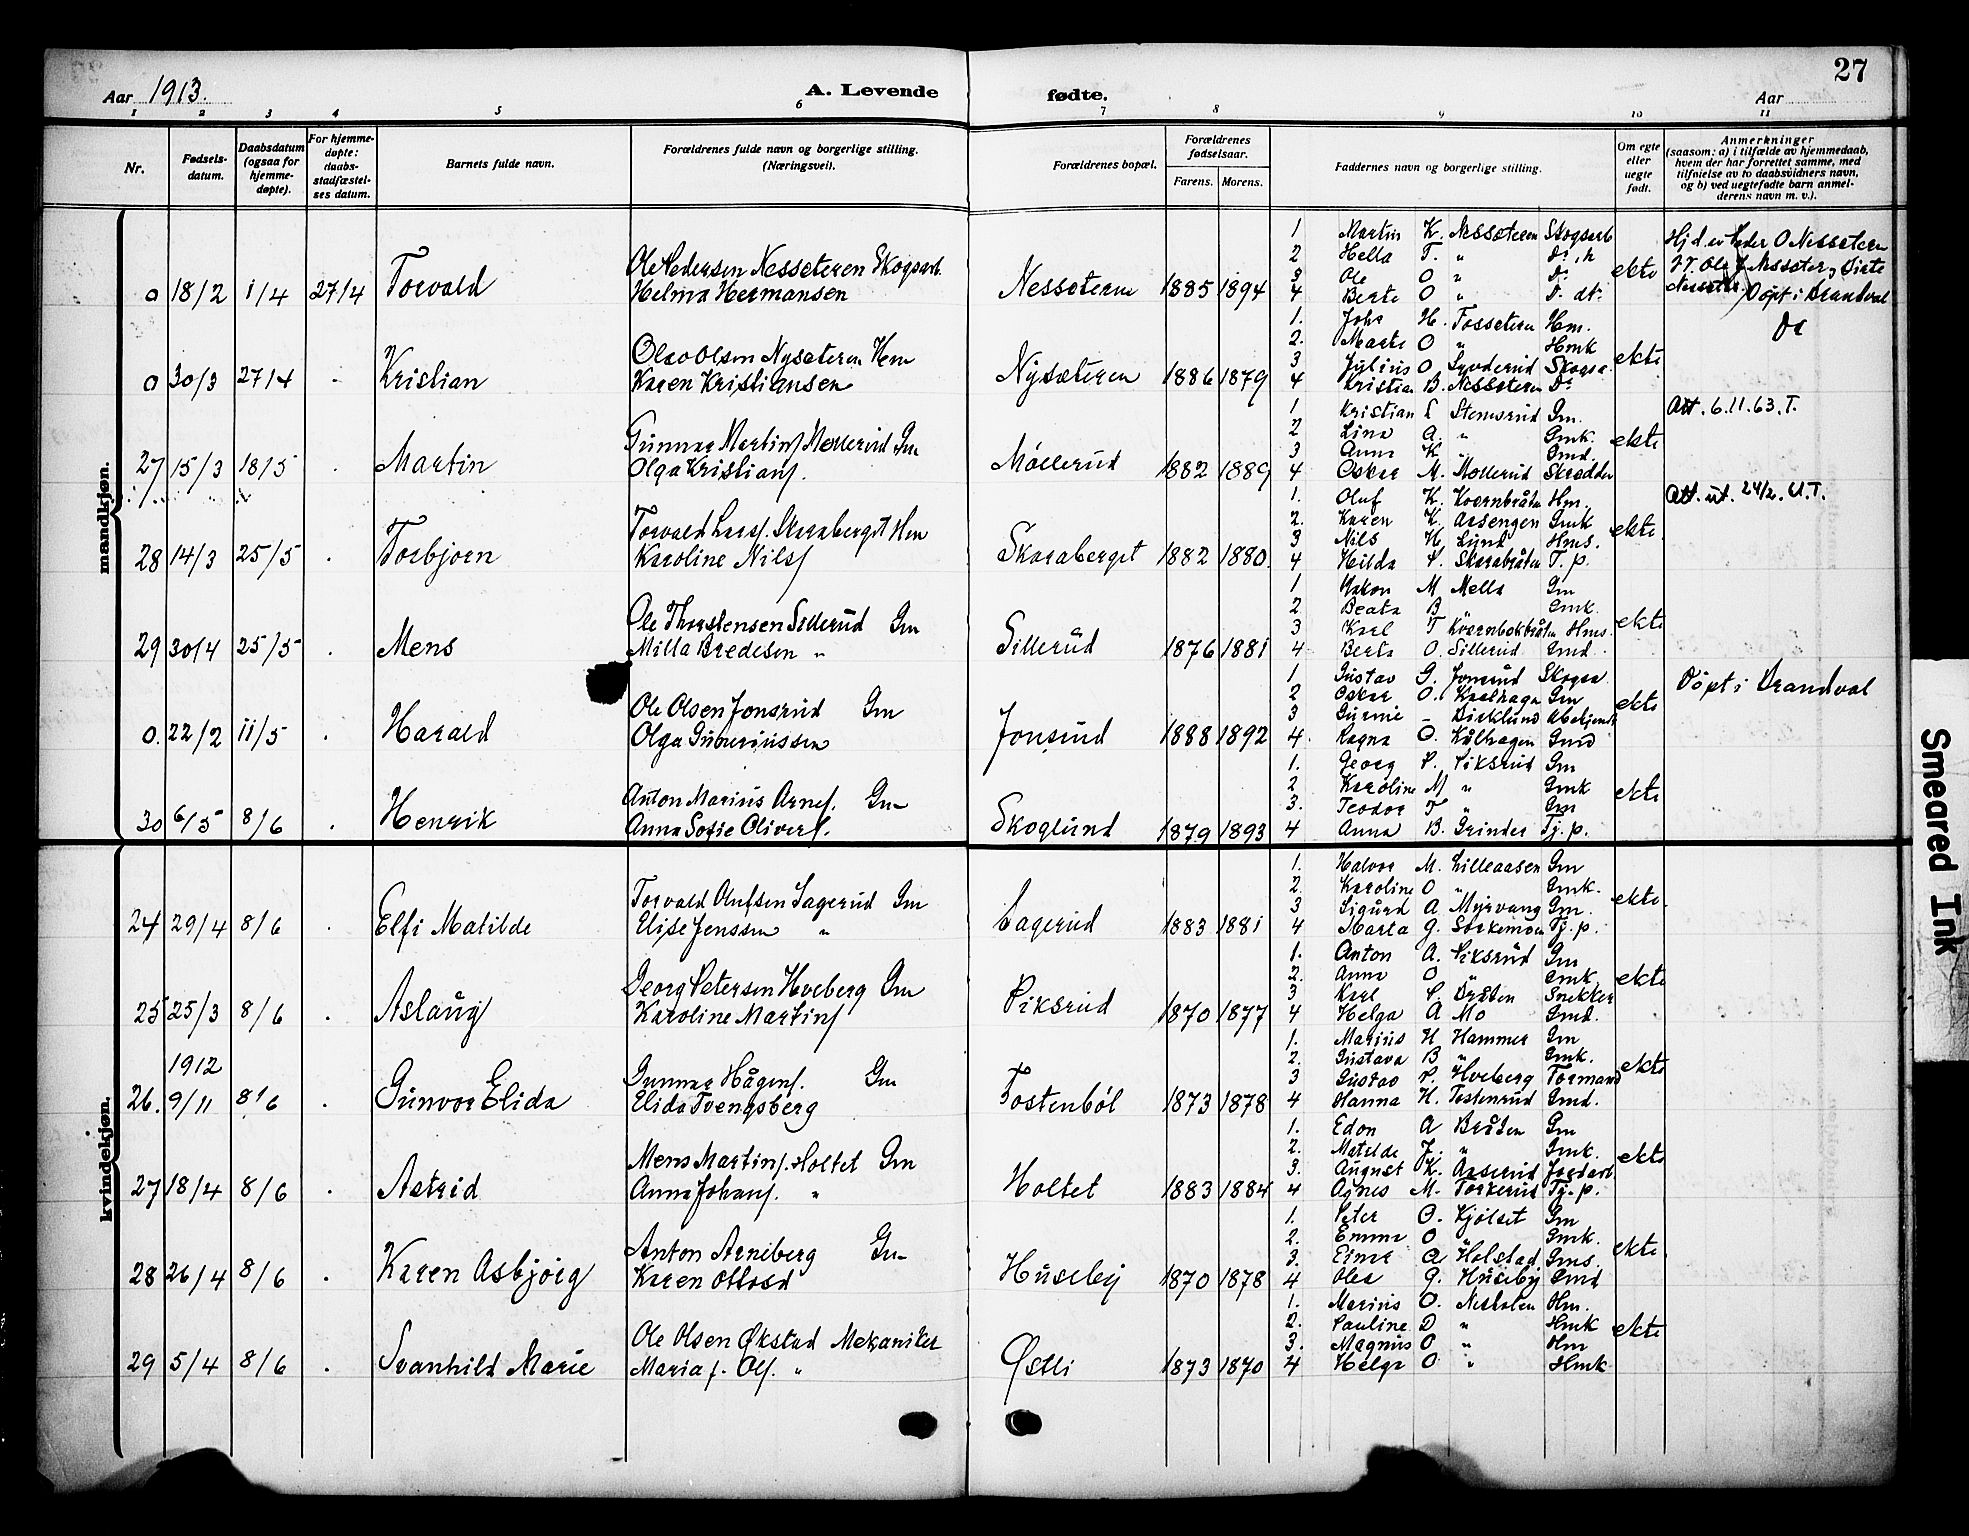 Aar 1913.
A. Levende
fødte.
27
Aar
1 2 3 4 5 6 7 8 9 10 11
Nr.
Fødsels-
datum.
Daabsdatum
(ogsaa for
hjemme-
døpte).
For hjemme-
døpte:
daabs-
stadfæstel-
ses datum.
Barnets fulde navn.
Forældrenes fulde navn og borgerlige stilling.
(Næringsvei).
Forældrenes bopæl.
Forældrenes
fødselsaar.
Farens. Morens.
Faddernes navn og borgerlige stilling.
Om egte
eller
uegte
født.
Anmerkninger
(saasom: a) i tilfælde av hjemmedaab,
hvem der har forrettet samme, med
tilføielse av to daabsvidners navn,
og b) ved uegtefødte barn anmel-
derens navn m. v.).
mandkjøn.
0 18/2 1/4 27/4 Torvald
Ole Pedersen Nessæteren Skogsarb.
Helma Hermansen
Nessæteren 1885 1894
1 Martin K. Nessæteren Skogsarb
2 Hella T. "
3 Ole O "
4 Berte O "
ekte
Døpt i Brandval
0 30/3 27/4 Kristian
Olav Olsen Nysæteren Hm
Karen Kristiansen
Nysæteren 1886 1879
1. Johs H. Tossæteren Hm.
2. Marte O " Hmk
3 Julius O Skogsa.
4 Kristian B. Nessæteren Do
ekte
27 15/3 18/5 Martin
Gunnar Martins. Møllerud Gm
Olga Kristians.
Møllerud 1882 1889
1 Kristian L Stemsrud Gm.
2 Lina A. " Gmk.
3 Anna K " Gmd.
4 Oskar M. Møllerud Skrædder
ekte
Att. 6.11.63. T.
28 14/3 25/5 Torbjørn
Torvald Lars. Skaraberget Hm
Karoline Nils.
Skaraberget 1882 1880
1. Oluf K. Kværnbråten Hm.
2. Karen K. Aasengen Gmk
3 Nils H Lund Hms.
4 Hilda P. Skarabråten T.p.
ekte
Att. ut. 24/2. 61. T.
29 30/4 25/5 Mens
Ole Thorstensen Sillerud Gm
Milla Bredesen "
Sillerud 1876 1881
1 Håkon M Mella Gm
2 Beata B " Gmk.
3 Karl T Hms.
4 Berta O. Sillerud Gmd.
ekte
0. 22/2 11/5 Harald
Ole Olsen Jonsrud Gm
Olga Gunerinssen
Jonsrud 1888 1892
1 Gustav G. Jonsrud Skogsa.
2 Oskar O. Gm
3 Gurine -
4. Ragna O. Kålhagen Gmd
ekte
Døpt i Brandval
30 6/5 8/6 Henrik
Anton Marius Arnes. Gm
Anna Sofie Olivers.
Skoglund 1879 1893
1. Georg P. Piksrud Gm
2 Karoline M " Gmk
3. Teodor T " Gm
4 Anna B. Grinder Tj.p.
ekte
kvindekjøn.
24 29/4 8/6 Elfi Matilde
Torvald Olufsen Lagerud Gm
Elise Jenssen "
Lagerud 1883 1881
1. Halvor M. Lilleaasen Gm
2. Karoline O " Gmk.
3 Sigurd A Myrvang Gm.
4 Marta G. Tj.p.
ekte.
25 25/3 8/6 Aslaug
Georg Petersen Hveberg Gm
Karoline Martins
Piksrud 1870 1877
1. Anton A. Piksrud Gm
2. Anna O " Gmk.
3 Karl P. Bråten Snekker
4 Helga A Mo Gmd.
ekte
1912
26. 9/11 8/6 Gunvor Elida
Gunnar Hågens. Gm
Elida Tvengsberg
Tostenbøl 1873 1878
1. Marius H Hammer Gm
2. Gustava B " Gmk.
3 Gustav P. Hveberg Formand
4 Hanna H. Tostenrud Gmd.
ekte
27 18/4 8/6 Astrid
Mens Martins. Holtet Gm
Anna Johans. "
Holtet 1883 1884
1. Edon A Bråten Gm
2. Matilde J. " Gmk.
3. August K. Aaserud Jordarb.
4 Agnes M. Torkerud Tj.p.
ekte
28 26/4 8/6 Karen Asbjørg
Anton Arneberg Gm
Karen Ottosd
Huseby 1870 1878
1. Peter O. Kjølset Gm
2. Emma O " Gmk.
3. Einar A Holstad Gms.
4 Olea G. Huseby Gmd
ekte
29 5/4 8/6 Svanhild Marie
Ole Olsen Økstad Mekaniker
Maria f. Ols. "
Østli 1873 1870
1. Marius O. Hm.
2. Pauline D " Hmk
3. Magnus O " Hm
4 Helga O " Hmk
ekte
Smeared Ink